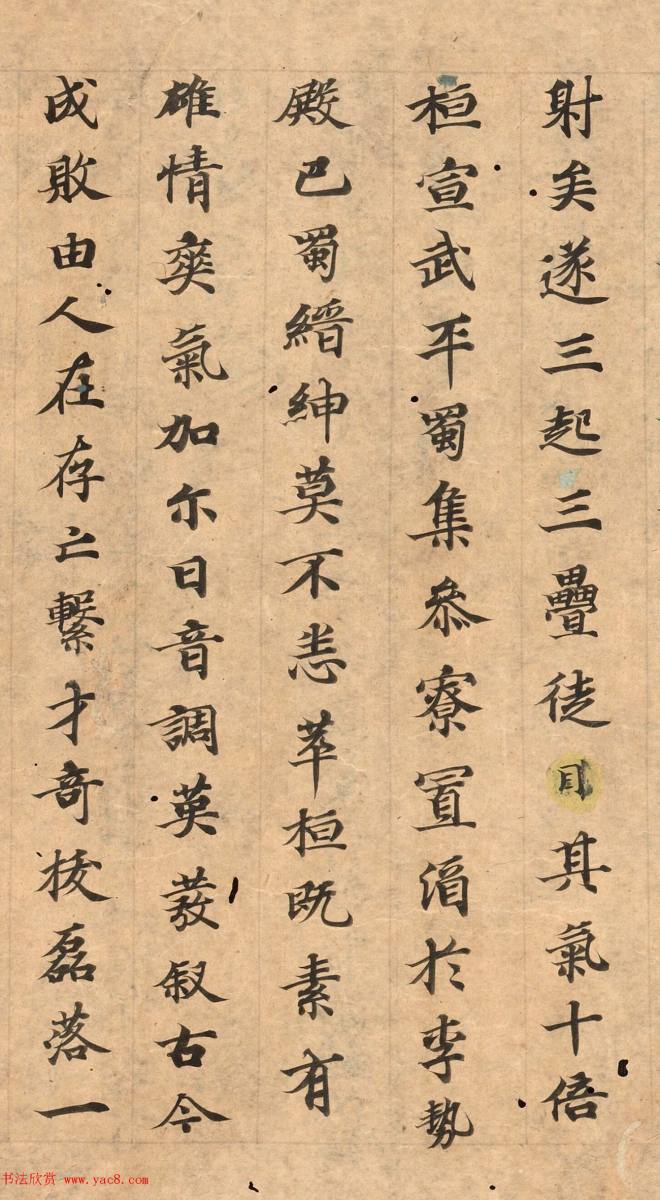 射矣遂三起三疊徒目其氣十倍
桓宣武平蜀集叅寮置酒於李勢
殿巴蜀縉紳莫不悉萃桓既素有
雄情爽氣加尓日音調英發叙古今
成敗由人在存亡繫才奇拔磊落一
书法欣赏 www.yac8.com